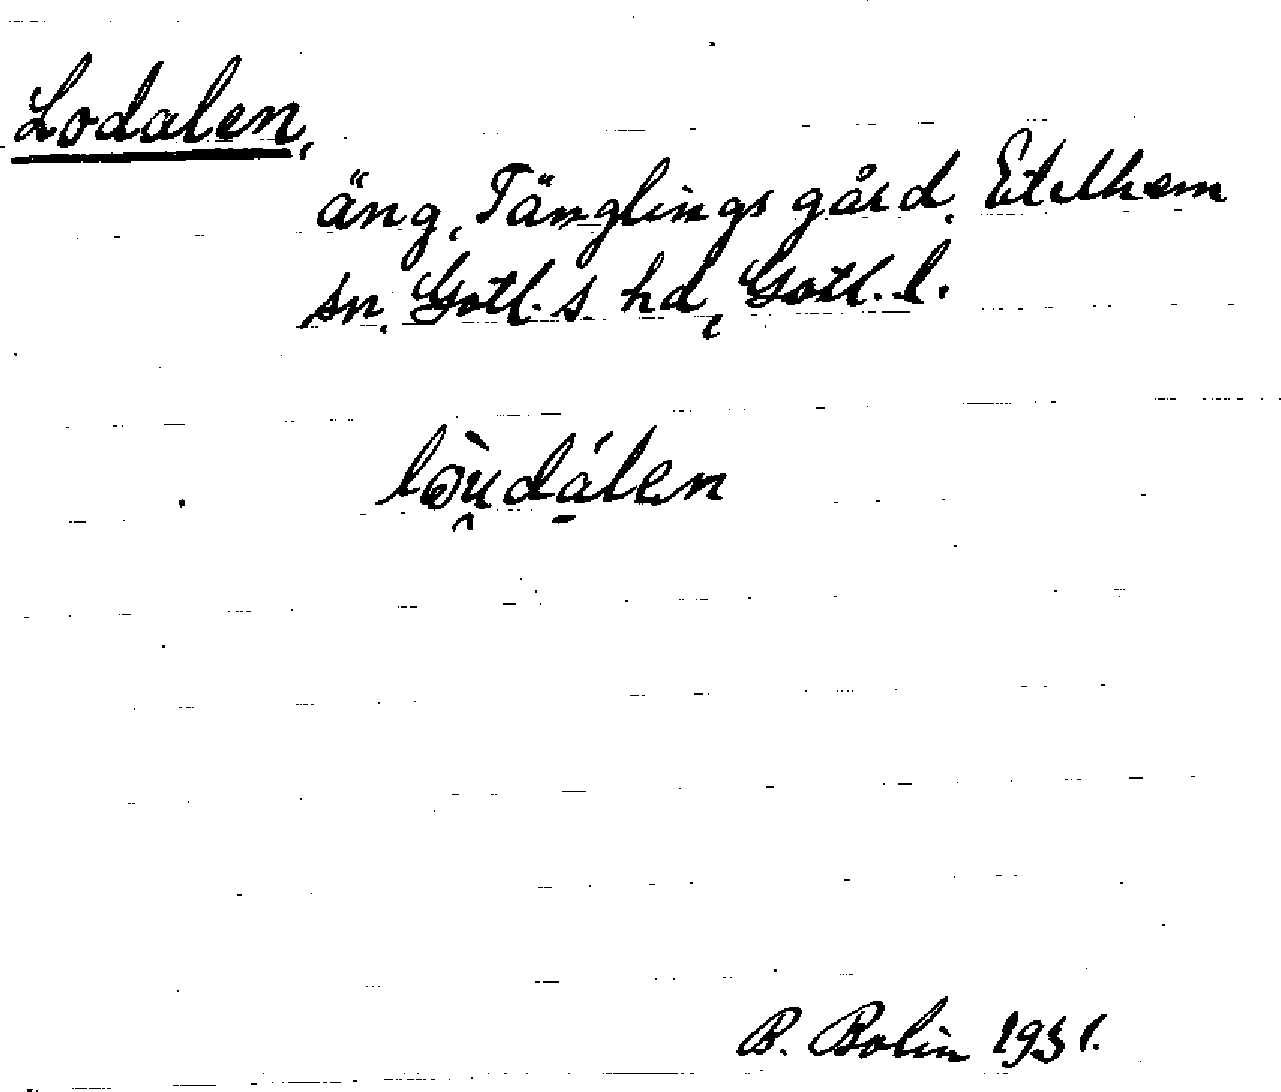 Lodalen,
äng, Tänglings gård, Etelhem
sn. Gotl. s hd, Gotl. l.
lɷ̀u̯dá̱len
B. Bolin 1931.